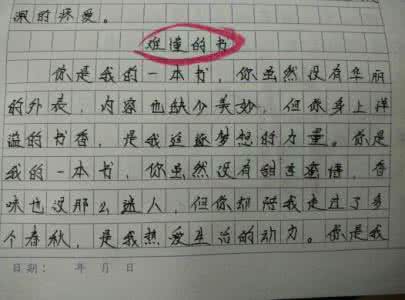 溉的深爱。
难懂的书
你是我的一本书，你虽然没有华丽
的外表，内容也缺少美妙，但你身上洋
溢的书香，是我追逐梦想的力量。你是
我的一本书，你虽然没有甜言蜜语，香
味也没那么迷人，但你却陪我走过了多
个春秋，是我热爱生活的动力。你是我
日期： 年 月 日